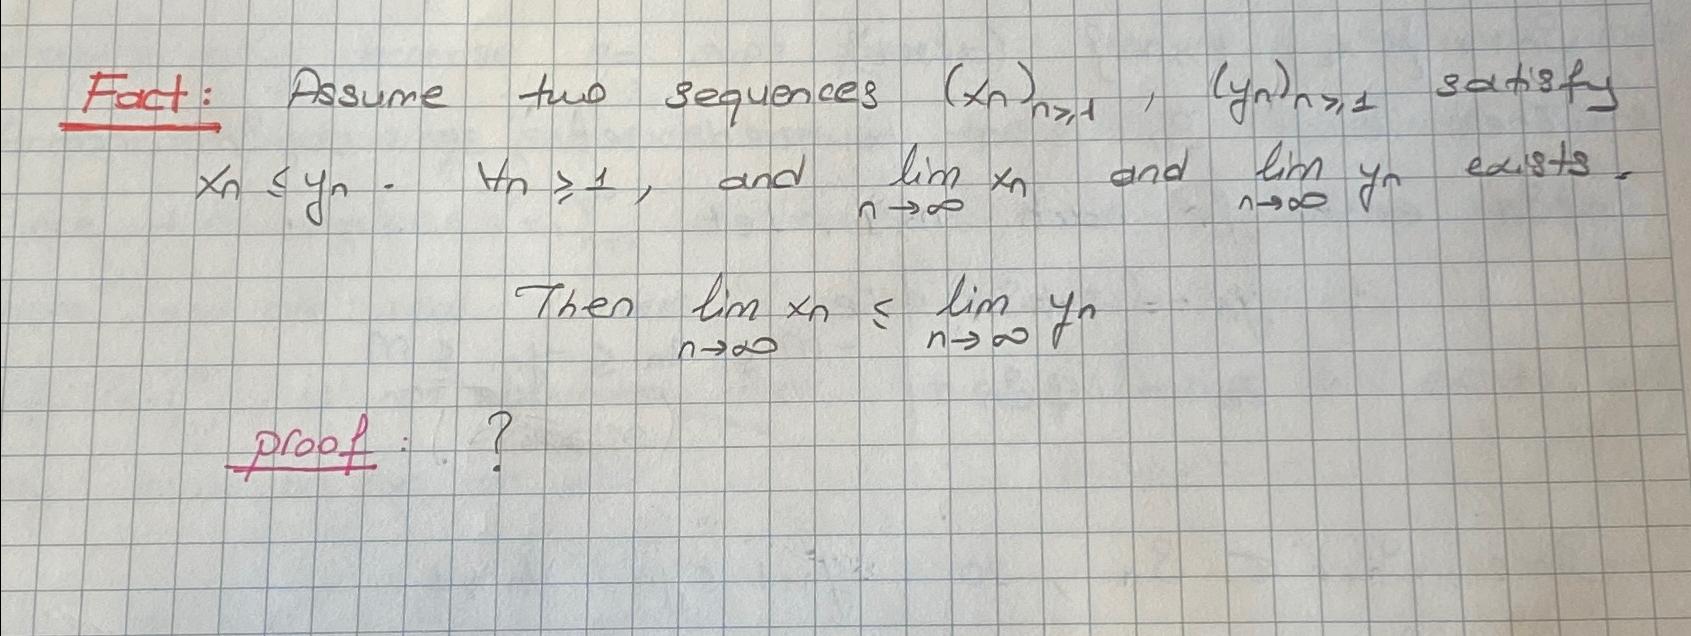 Fact: Assume two sequences (xn)n≥1, (yn)n≥1 satisfy
xn ≤ yn. ∀n ≥ 1, and lim n→∞ xn and lim n→∞ yn exists.
Then lim n→∞ xn ≤ lim n→∞ yn
proof: ?